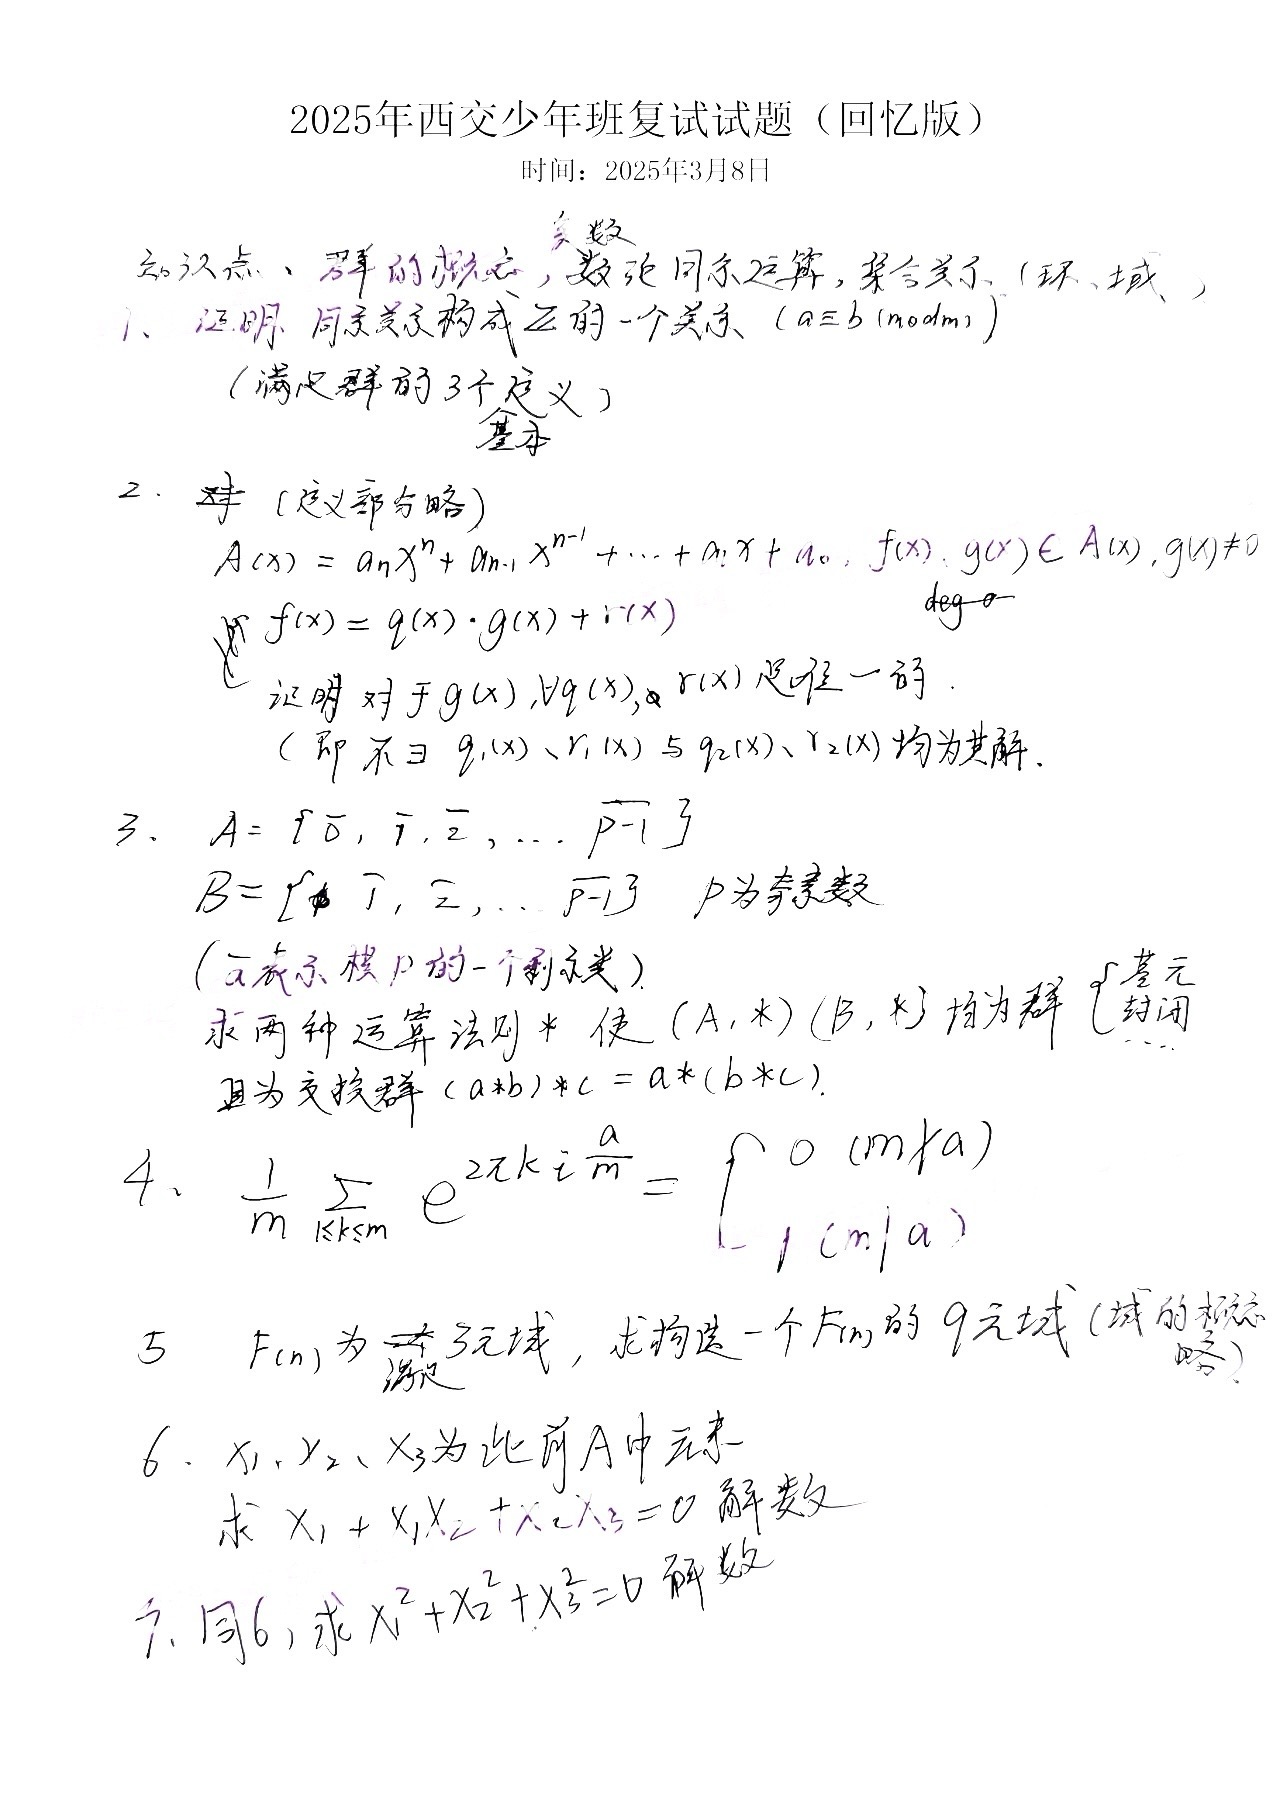 2025年西交少年班复试试题（回忆版）
时间：2025年3月8日
知识点、群的概念，数论同余运算，集合关系（环、域、）
1、证明 同余关系构成Z的一个关系（a≡b (modm)）
（满足群的3个定义）
基本
2. （定义部分略）
A(x) = aₙxⁿ + aₙ₋₁xⁿ⁻¹ + … + a₁x + a₀, f(x), g(x) ∈ A(x), g(x)≠0
deg
f(x) = q(x)·g(x) + r(x)
证明 对于g(x), ∀q(x), r(x) 是唯一的.
（即 不∃ q₁(x)、r₁(x) 与 q₂(x)、r₂(x) 均为其解.
3、 A = {0̄, 1̄, 2̄, … p̄-̄1̄}
B = {1̄, 2̄, … p̄-̄1̄} p为奇素数
（ā表示模p的一个剩余类）.
求两种运算法则* 使 (A, *) (B, *) 均为群 { 基元 封闭 …
且为交换群 (a*b)*c = a*(b*c).
4、 1/m ∑_{1≤k≤m} e^{2πki a/m} = { 0 (m∤a)
1 (m|a)
5 F(n)为3元域，求构造一个F(n)的9元域（域的概念
满足 略）.
6. x₁、x₂、x₃为此前A中元素
求 x₁ + x₁x₂ + x₂x₃ = 0 解数
7、同6，求 x₁² + x₂² + x₃² = 0 解数